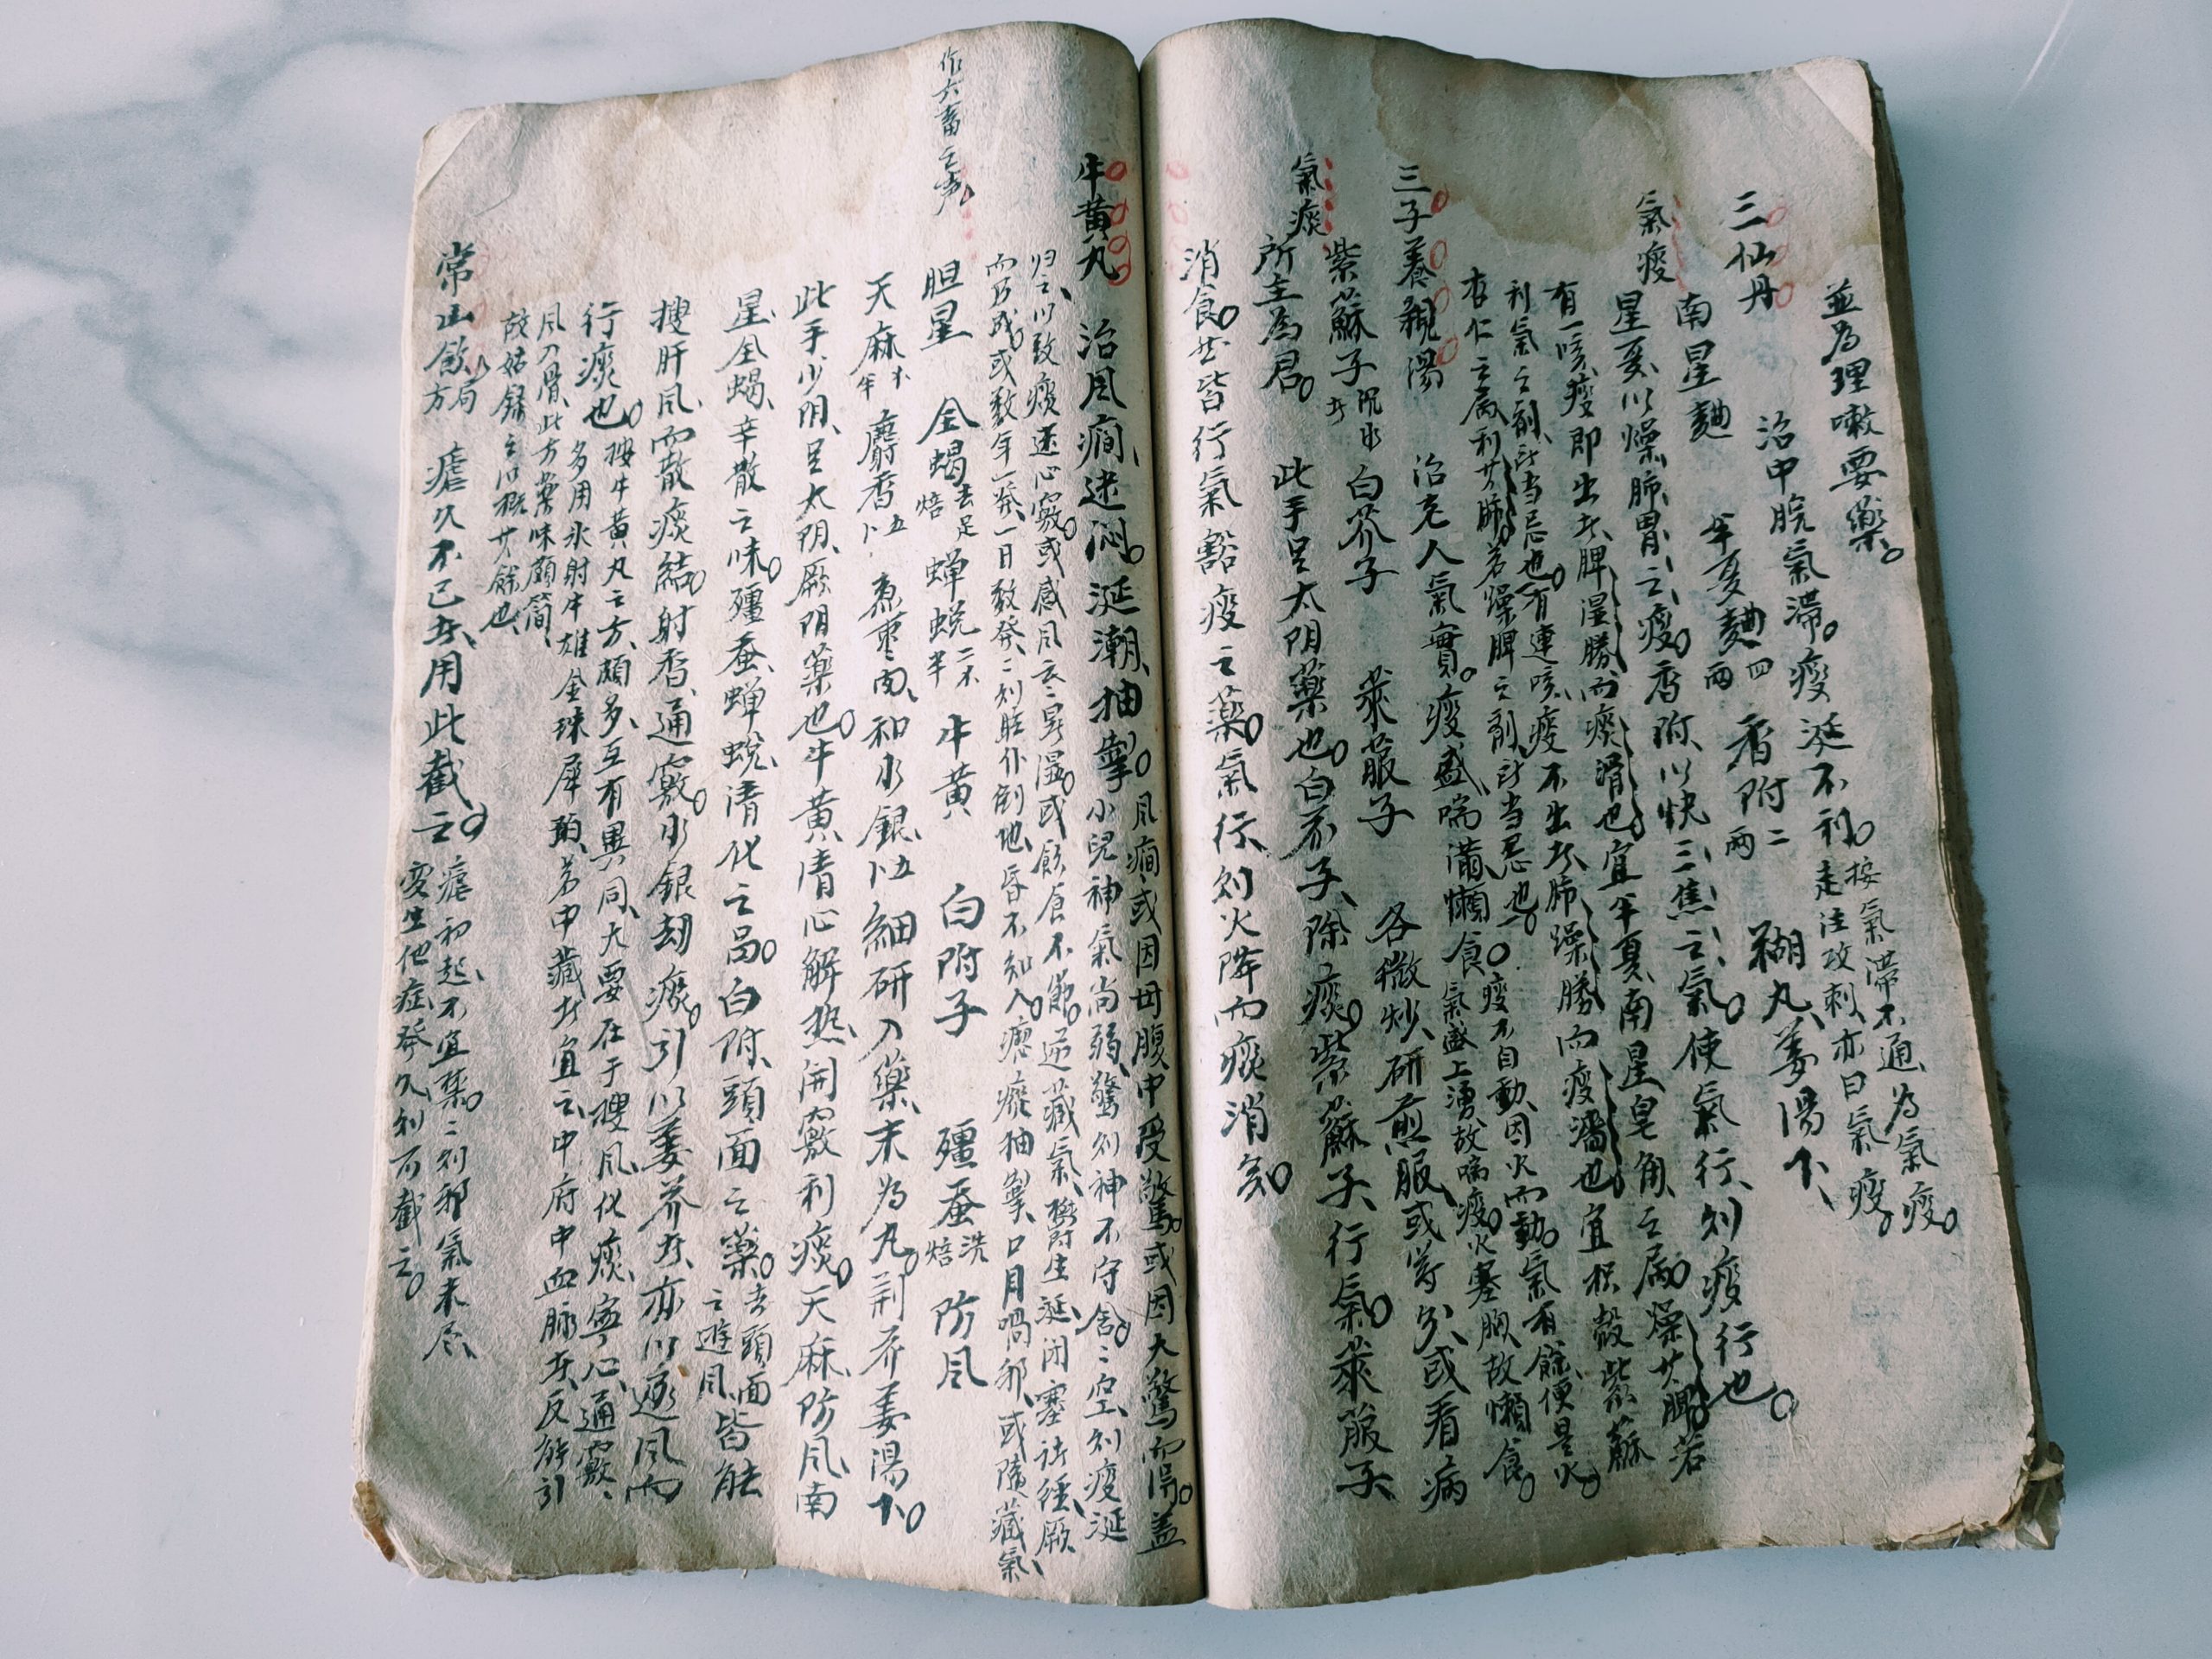 並為理嗽要藥
三仙丹 治中脘氣滯痰涎不利
按氣滯不通為氣痰
走注攻刺亦曰氣痰
南星麯 半夏麯四兩 香附二兩 糊丸姜湯下
氣痰
星夏以燥肺胃之痰香附以快三焦之氣使氣行則痰行也
有一咳痰即出者脾濕勝而痰滑也宜半夏南星皂角之屬燥其脾若
利氣之劑所當忌也有連咳痰不出者肺燥勝而痰濇也宜枳殼紫蘇
杏仁之屬利其肺若燥脾之劑所當忌也
三子養親湯 治老人氣實痰盛喘滿懶食
痰不自動因火而動氣有餘便是火
氣盛上湧故喘痰火塞胸故懶食
紫蘇子沉水者 白芥子 萊菔子 各微炒研煎服或等分或看病
氣痰
所主為君 此手足太陰藥也白芥子除痰紫蘇子行氣萊菔子
消食然皆行氣豁痰之藥氣行則火降而痰消矣
牛黃丸 治風癇迷悶涎潮抽掣
風癇或因母腹中受驚或因大驚而得蓋
小兒神氣尚弱驚則神不守舍舍空則痰涎
归之以致痰迷心竅或感風寒暑濕或飲食不節逆藏氣欝生涎閉塞諸經厥
而乃成或數年一發一日數發發則眩仆倒地昏不知人瘛瘲抽掣口目喎邪或隨藏氣
作六畜之声
胆星 全蝎去足焙 蟬蛻二不半 牛黃 白附子 殭蚕洗焙 防風
天麻不半 麝香五卜 煮棗肉和水銀五卜細研入藥末為丸荊芥姜湯下
此手少阴足太阴厥阴藥也牛黃清心解热開竅利痰天麻防風南
星全蝎辛散之味殭蚕蟬蛻清化之品白附頭面之藥去頭面之遊風皆能
搜肝風而散痰結射香通竅水銀劫痰引以姜芥者亦以逐風而
行痰也
按牛黃丸之方頗多互有異同大要在于搜風化痰寧心通竅
多用氷射牛雄金珠犀珀若中藏者宜之中府中血脉者反能引
風入骨此方藥味頗簡
故姑錄之以概其餘也
常山飲局方 瘧久不已者用此截之
瘧初起不宜禁禁則邪氣未尽
变生他症發久則可截之